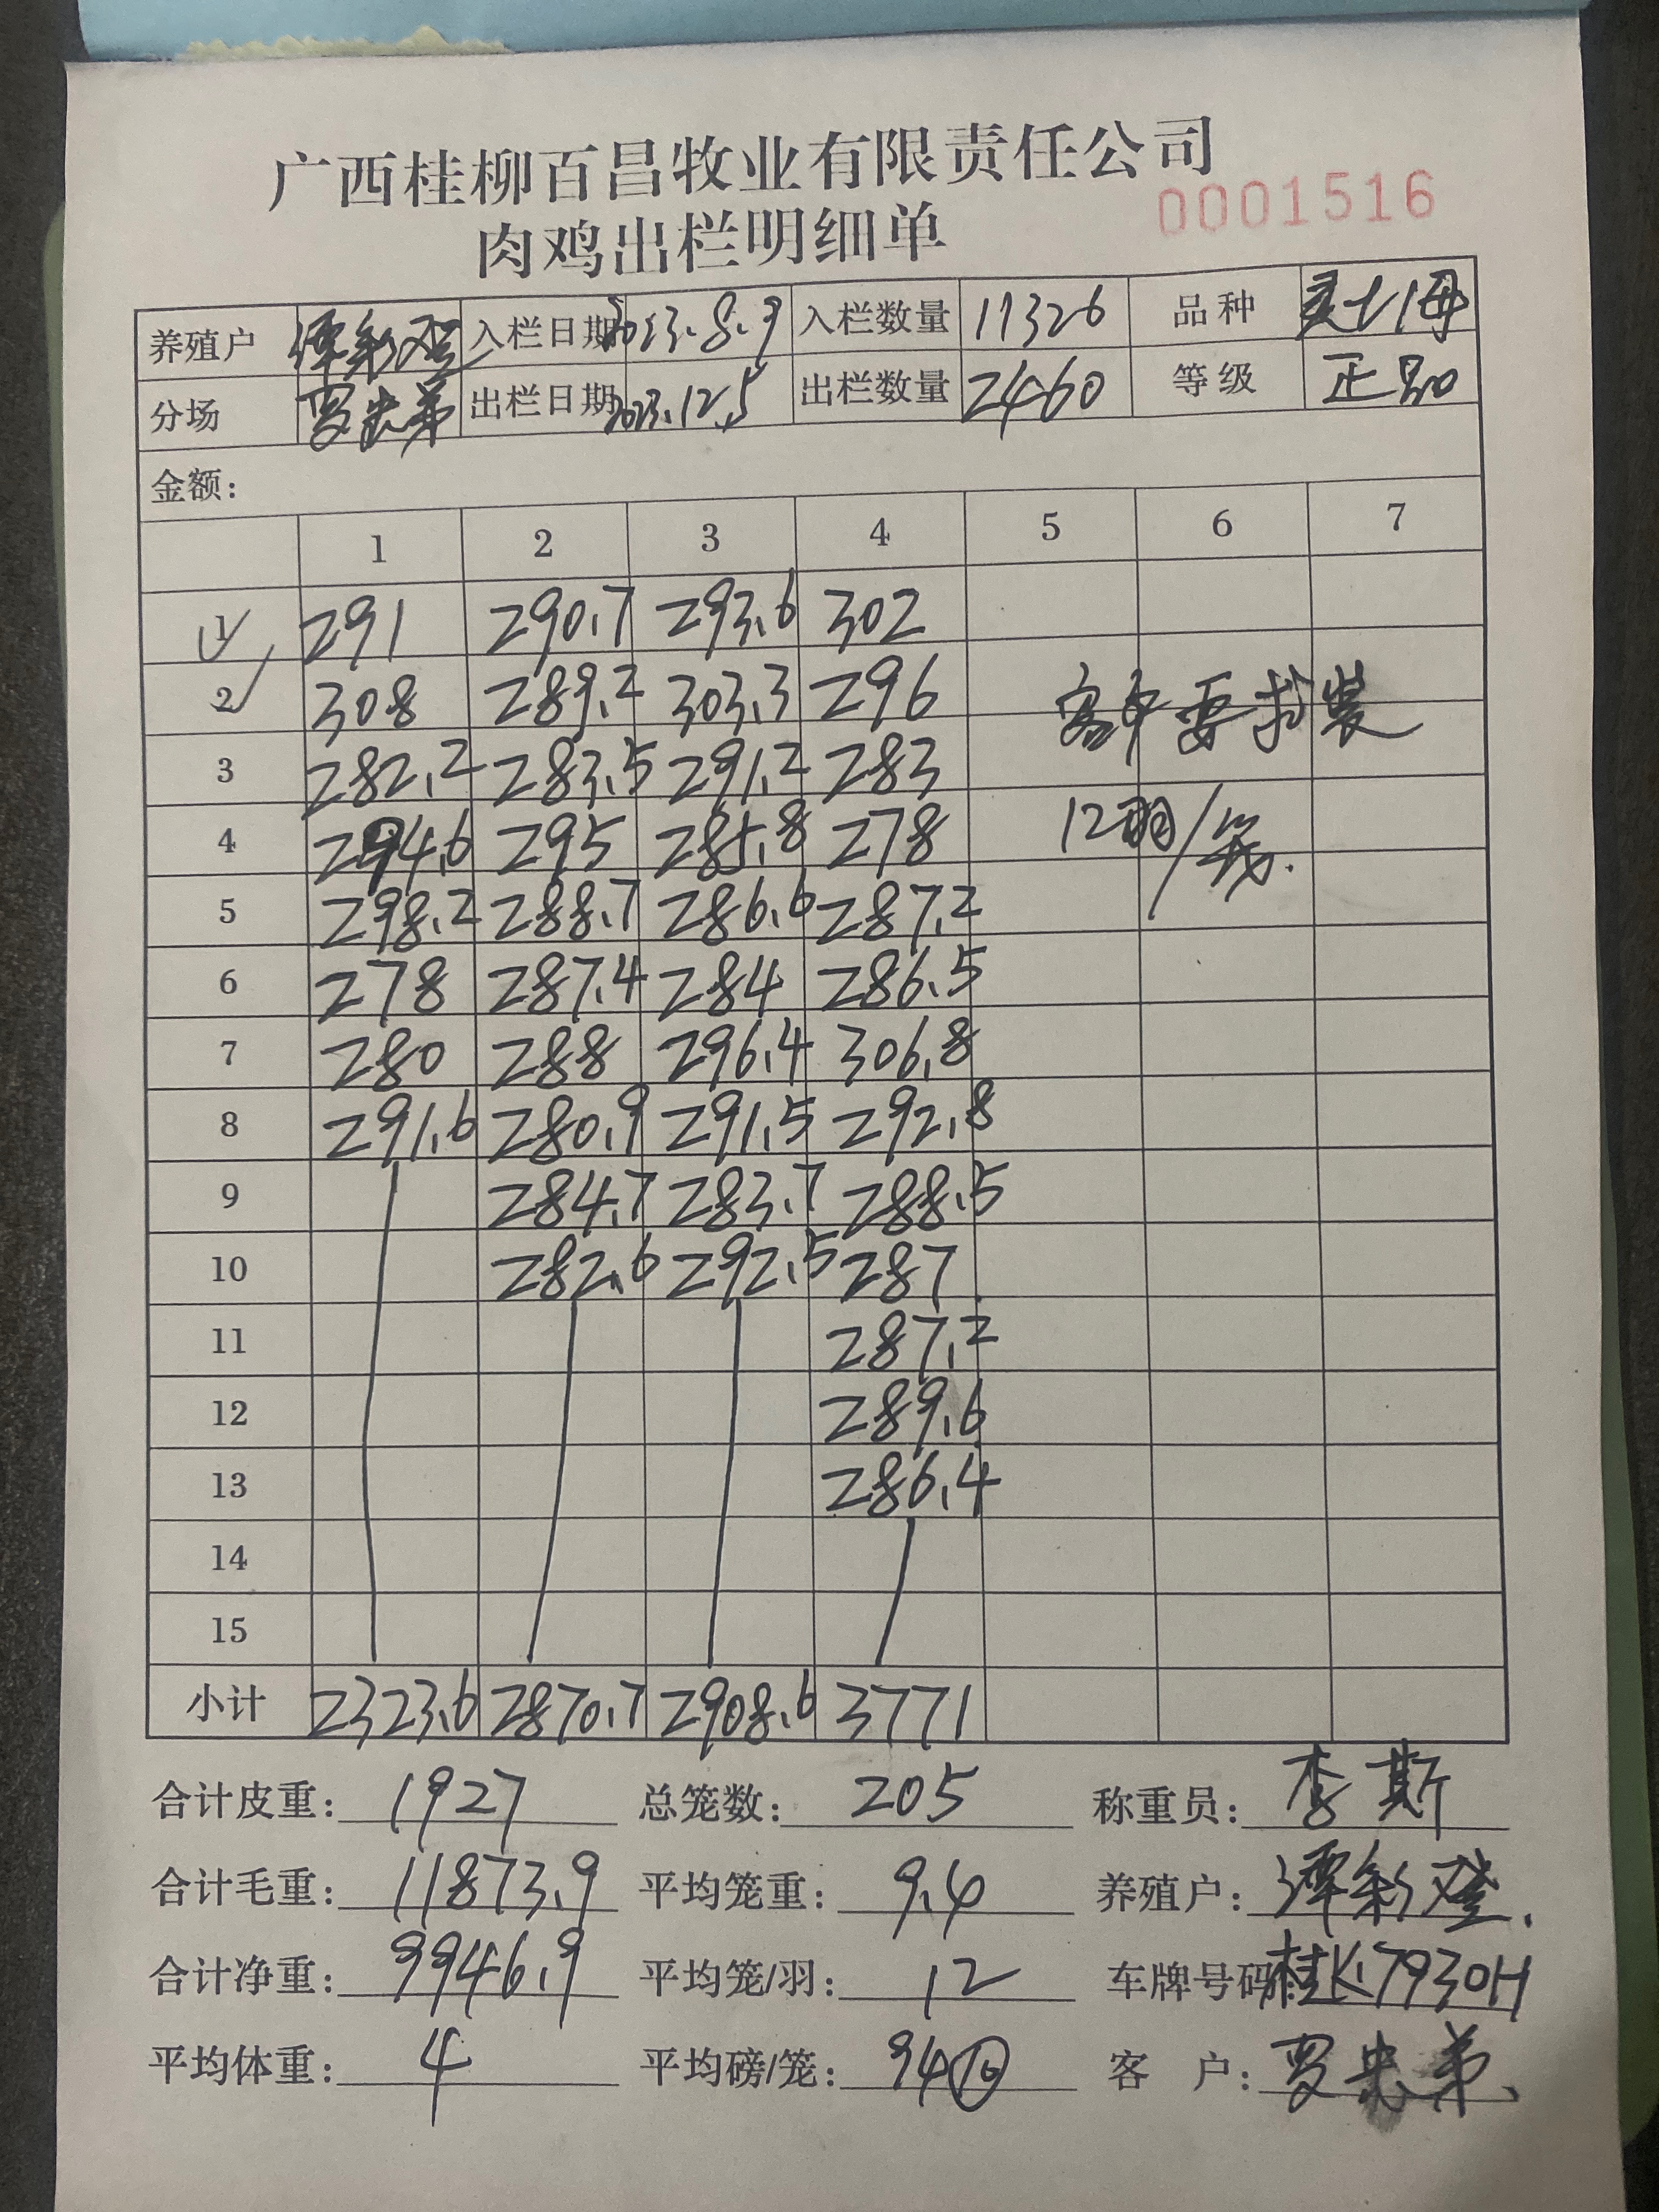 广西桂柳百昌牧业有限责任公司
0001516
肉鸡出栏明细单
养殖户 谭彩登 入栏日期 2023.8.9 入栏数量 11326 品种 土1母
分场 贾忠弟 出栏日期 2023.12.5 出栏数量 2460 等级 正品
金额:
1 2 3 4 5 6 7
1 291 290.7 293.6 302
2 308 289.2 303.3 296 客户要求装
3 282.2 283.5 291.2 283
4 294.6 295 285.8 278 12羽/笼.
5 298.2 288.7 286.6 287.2
6 278 287.4 284 286.5
7 280 288 296.4 306.8
8 291.6 280.9 291.5 292.8
9 284.7 283.7 288.5
10 282.6 292.5 287
11 287.2
12 289.6
13 286.4
14
15
小计 2323.6 2870.7 2908.6 3771
合计皮重: 1927 总笼数: 205 称重员: 李斯
合计毛重: 11873.9 平均笼重: 9.4 养殖户: 谭彩登.
合计净重: 9946.9 平均笼/羽: 12 车牌号码: 桂K7930H
平均体重: 4 平均磅/笼: 94 客 户: 贾忠弟